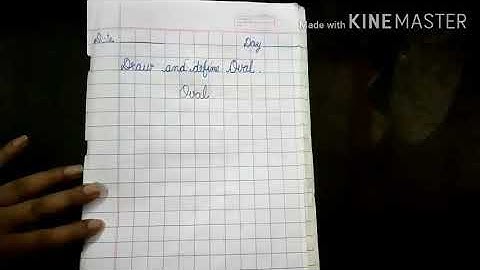 Made with KINEMASTER
Date
Day
Draw and define Oval.
Oval